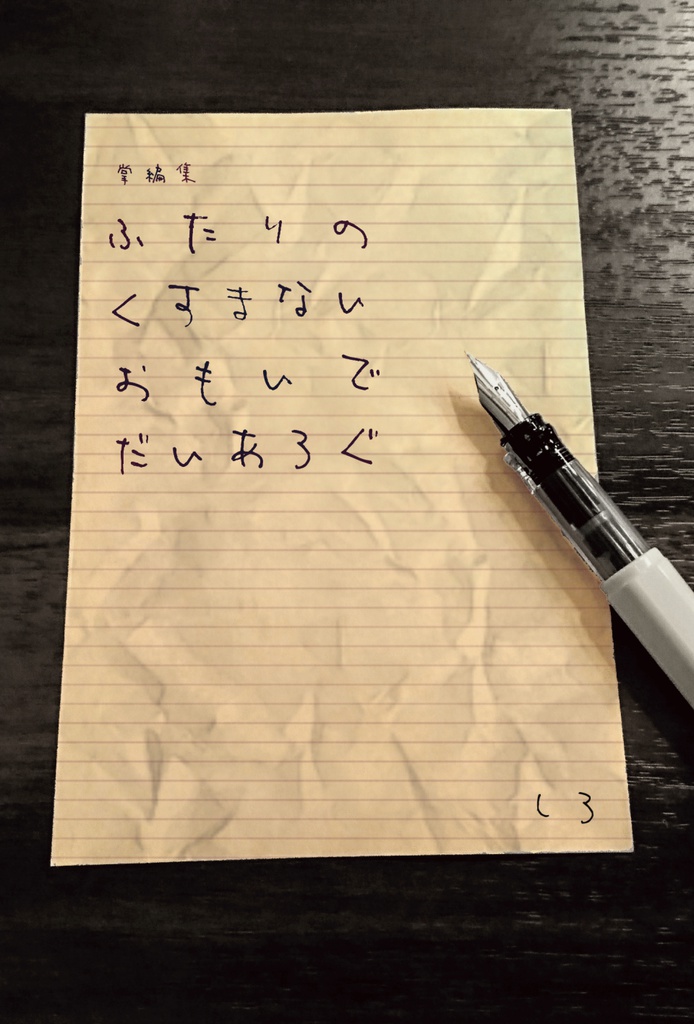 掌編集
ふたりの
くすまない
おもいで
だいあろぐ
しろ